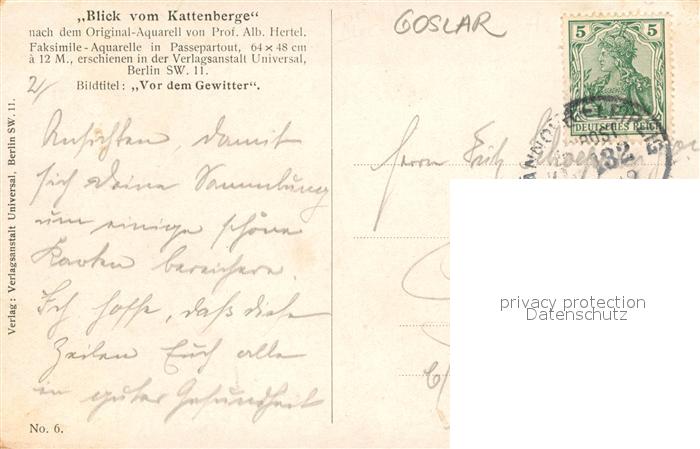 „Blick vom Kattenberge“
nach dem Original-Aquarell von Prof. Alb. Hertel.
Faksimile-Aquarelle in Passepartout, 64 × 48 cm
à 12 M., erschienen in der Verlagsanstalt Universal,
Berlin SW. 11.
Bildtitel: „Vor dem Gewitter“.
2/
Ansichten, damit
sich Deine Sammlung
um einige schöne
Karten bereichere.
Ich hoffe, daß diese
Zeilen Euch alle
in guter Gesundheit
No. 6.
Verlag: Verlagsanstalt Universal, Berlin SW. 11.
GOSLAR
5 5
DEUTSCHES REICH
POST
132
Herrn Fritz
privacy protection
Datenschutz